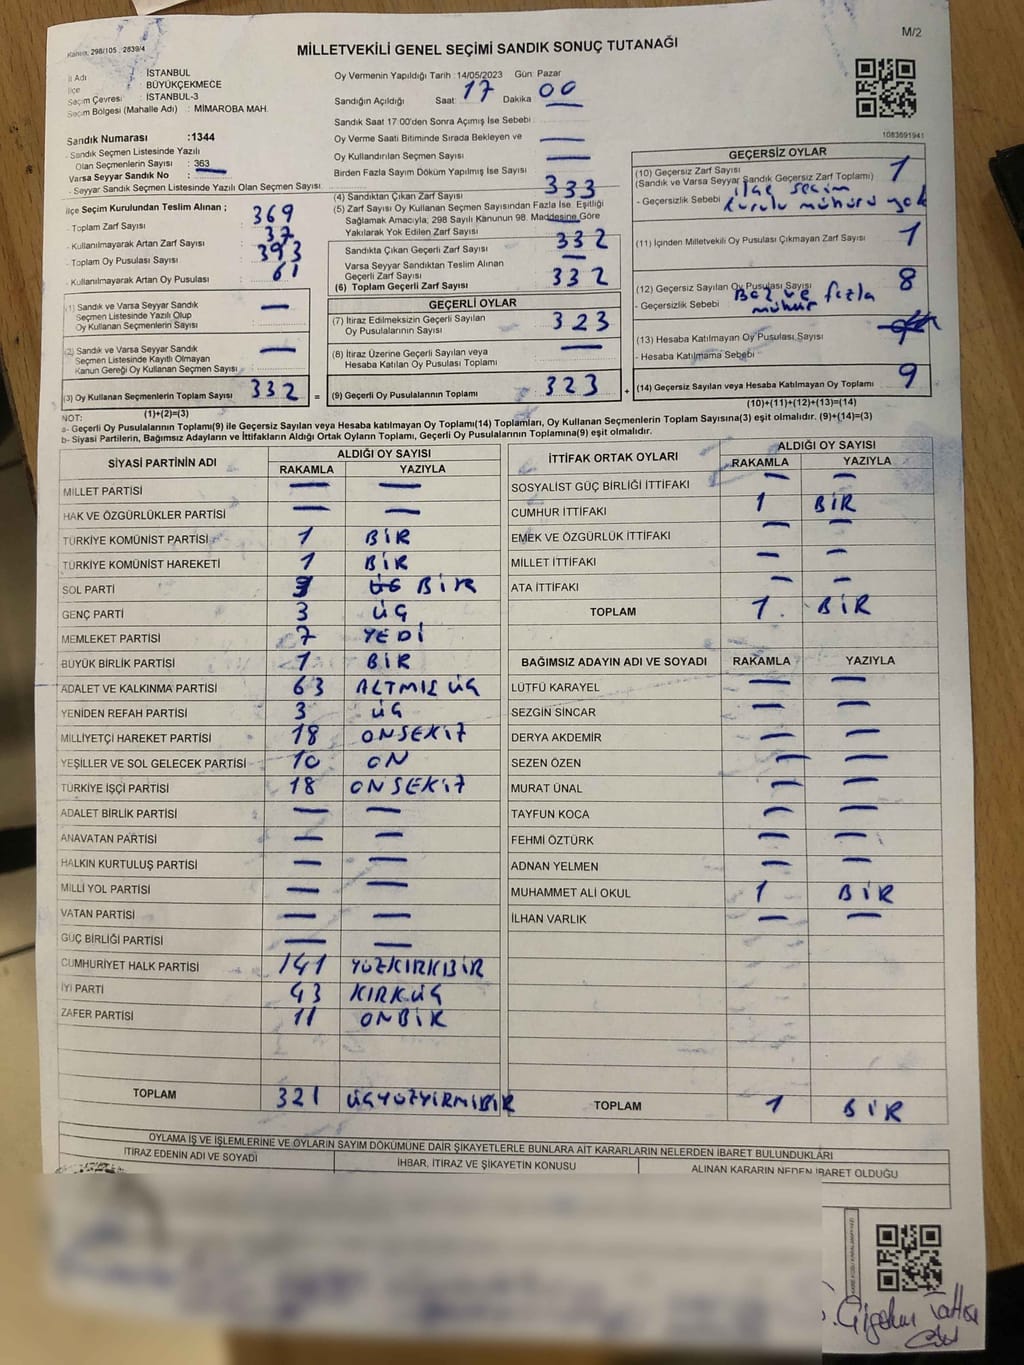 M/2
Kanun, 298/105, 2839/4
MİLLETVEKİLİ GENEL SEÇİMİ SANDIK SONUÇ TUTANAĞI
İl Adı : İSTANBUL
İlçe : BÜYÜKÇEKMECE
Seçim Çevresi : İSTANBUL-3
Seçim Bölgesi (Mahalle Adı) : MİMAROBA MAH.
Sandık Numarası :1344
- Sandık Seçmen Listesinde Yazılı
Olan Seçmenlerin Sayısı : 363
Varsa Seyyar Sandık No : —
- Seyyar Sandık Seçmen Listesinde Yazılı Olan Seçmen Sayısı
İlçe Seçim Kurulundan Teslim Alınan ;
- Toplam Zarf Sayısı 369
- Kullanılmayarak Artan Zarf Sayısı 37
- Toplam Oy Pusulası Sayısı 393
- Kullanılmayarak Artan Oy Pusulası 61
(1) Sandık ve Varsa Seyyar Sandık
Seçmen Listesinde Yazılı Olup
Oy Kullanan Seçmenlerin Sayısı —
(2) Sandık ve Varsa Seyyar Sandık
Seçmen Listesinde Kayıtlı Olmayan
Kanun Gereği Oy Kullanan Seçmen Sayısı —
(3) Oy Kullanan Seçmenlerin Toplam Sayısı 332 =
(1)+(2)=(3)
Oy Vermenin Yapıldığı Tarih :14/05/2023 Gün: Pazar
Sandığın Açıldığı Saat: 17 Dakika 00
Sandık Saat 17.00'den Sonra Açımış İse Sebebi
Oy Verme Saati Bitiminde Sırada Bekleyen ve —
Oy Kullandırılan Seçmen Sayısı —
Birden Fazla Sayım Döküm Yapılmış İse Sayısı
(4) Sandıktan Çıkan Zarf Sayısı 333
(5) Zarf Sayısı Oy Kullanan Seçmen Sayısından Fazla İse, Eşitliği
Sağlamak Amacıyla; 298 Sayılı Kanunun 98. Maddesine Göre
Yakılarak Yok Edilen Zarf Sayısı —
Sandıkta Çıkan Geçerli Zarf Sayısı 332
Varsa Seyyar Sandıktan Teslim Alınan
Geçerli Zarf Sayısı —
(6) Toplam Geçerli Zarf Sayısı 332
GEÇERLİ OYLAR
(7) İtiraz Edilmeksizin Geçerli Sayılan
Oy Pusulalarının Sayısı 323
(8) İtiraz Üzerine Geçerli Sayılan veya
Hesaba Katılan Oy Pusulası Toplamı —
(9) Geçerli Oy Pusulalarının Toplamı 323 +
1083691941
GEÇERSİZ OYLAR
(10) Geçersiz Zarf Sayısı 1
(Sandık ve Varsa Seyyar Sandık Geçersiz Zarf Toplamı)
- Geçersizlik Sebebi ilçe seçim
kurulu mührü yok
(11) İçinden Milletvekili Oy Pusulası Çıkmayan Zarf Sayısı 1
(12) Geçersiz Sayılan Oy Pusulası Sayısı 8
- Geçersizlik Sebebi Boş ve fazla
mühür
(13) Hesaba Katılmayan Oy Pusulası Sayısı
- Hesaba Katılmama Sebebi
(14) Geçersiz Sayılan veya Hesaba Katılmayan Oy Toplamı 9
(10)+(11)+(12)+(13)=(14)
NOT:
a- Geçerli Oy Pusulalarının Toplamı(9) ile Geçersiz Sayılan veya Hesaba katılmayan Oy Toplamı(14) Toplamları, Oy Kullanan Seçmenlerin Toplam Sayısına(3) eşit olmalıdır. (9)+(14)=(3)
b- Siyasi Partilerin, Bağımsız Adayların ve İttifakların Aldığı Ortak Oyların Toplamı, Geçerli Oy Pusulalarının Toplamına(9) eşit olmalıdır.
SİYASİ PARTİNİN ADI ALDIĞI OY SAYISI
RAKAMLA YAZIYLA
MİLLET PARTİSİ — —
HAK VE ÖZGÜRLÜKLER PARTİSİ — —
TÜRKİYE KOMÜNİST PARTİSİ 1 BİR
TÜRKİYE KOMÜNİST HAREKETİ 1 BİR
SOL PARTİ BİR
GENÇ PARTİ 3 ÜÇ
MEMLEKET PARTİSİ 7 YEDİ
BÜYÜK BİRLİK PARTİSİ 1 BİR
ADALET VE KALKINMA PARTİSİ 63 ALTMIŞ ÜÇ
YENİDEN REFAH PARTİSİ 3 ÜÇ
MİLLİYETÇİ HAREKET PARTİSİ 18 ONSEKİZ
YEŞİLLER VE SOL GELECEK PARTİSİ 10 ON
TÜRKİYE İŞÇİ PARTİSİ 18 ONSEKİZ
ADALET BİRLİK PARTİSİ — —
ANAVATAN PARTİSİ — —
HALKIN KURTULUŞ PARTİSİ — —
MİLLİ YOL PARTİSİ — —
VATAN PARTİSİ — —
GÜÇ BİRLİĞİ PARTİSİ — —
CUMHURİYET HALK PARTİSİ 141 YÜZKIRKBİR
İYİ PARTİ 43 KIRKÜÇ
ZAFER PARTİSİ 11 ONBİR
TOPLAM 321 ÜÇYÜZYİRMİBİR
İTTİFAK ORTAK OYLARI ALDIĞI OY SAYISI
RAKAMLA YAZIYLA
SOSYALİST GÜÇ BİRLİĞİ İTTİFAKI — —
CUMHUR İTTİFAKI 1 BİR
EMEK VE ÖZGÜRLÜK İTTİFAKI — —
MİLLET İTTİFAKI — —
ATA İTTİFAKI — —
TOPLAM 1 BİR
BAĞIMSIZ ADAYIN ADI VE SOYADI RAKAMLA YAZIYLA
LÜTFÜ KARAYEL — —
SEZGİN SİNCAR — —
DERYA AKDEMİR — —
SEZEN ÖZEN — —
MURAT ÜNAL — —
TAYFUN KOCA — —
FEHMİ ÖZTÜRK — —
ADNAN YELMEN — —
MUHAMMET ALİ OKUL 1 BİR
İLHAN VARLIK — —
TOPLAM 1 BİR
OYLAMA İŞ VE İŞLEMLERİNE VE OYLARIN SAYIM DÖKÜMÜNE DAİR ŞİKAYETLERLE BUNLARA AİT KARARLARIN NELERDEN İBARET BULUNDUKLARI
İTİRAZ EDENİN ADI VE SOYADI İHBAR, İTİRAZ VE ŞİKAYETİN KONUSU ALINAN KARARIN NEDEN İBARET OLDUĞU